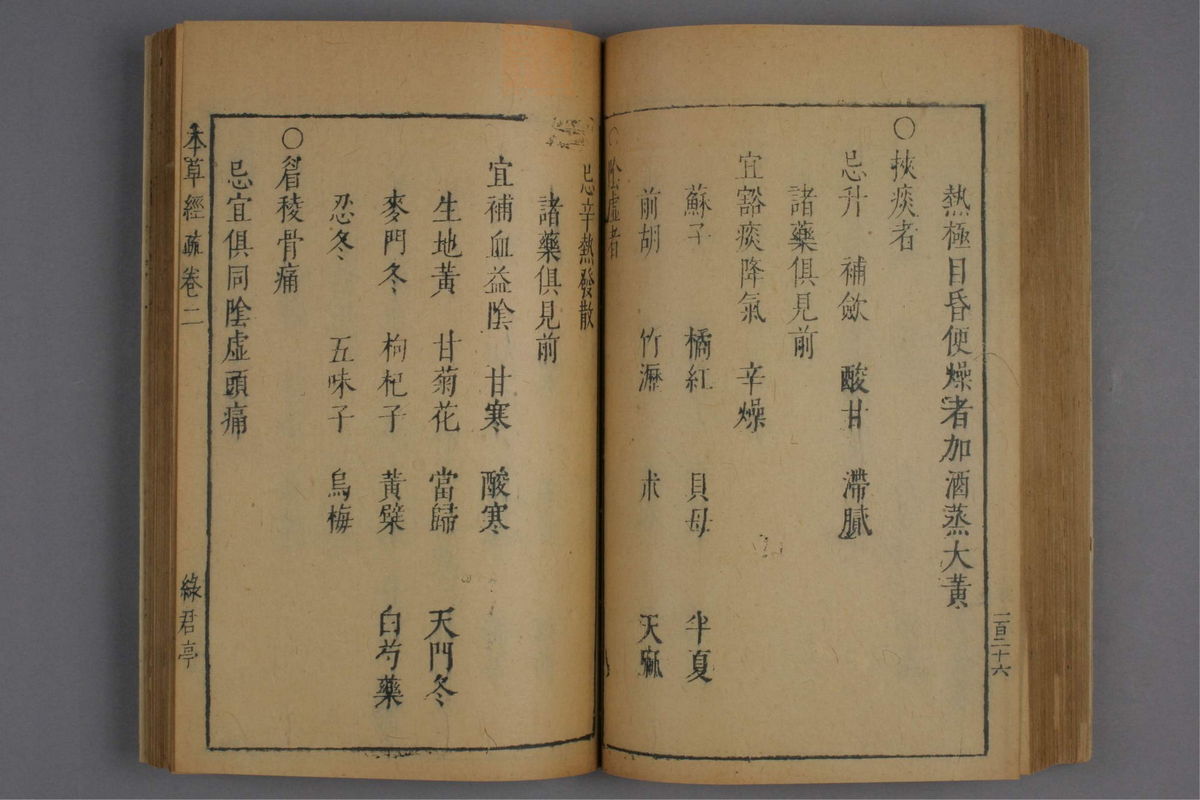 熱極目昏便燥者加酒蒸大黃
○挾痰者
忌升　補斂　酸甘　滯膩
諸藥俱見前
宜豁痰降氣　辛燥
蘇子　橘紅　貝母　半夏
前胡　竹瀝　朮　天麻
○陰虛者
一百二十六
忌辛熱發散
諸藥俱見前
宜補血益陰　甘寒　酸寒
生地黃　甘菊花　當歸　天門冬
麥門冬　枸杞子　黃檗　白芍藥
忍冬　五味子　烏梅
○眉稜骨痛
忌宜俱同陰虛頭痛
本草經疏卷二　綠君亭